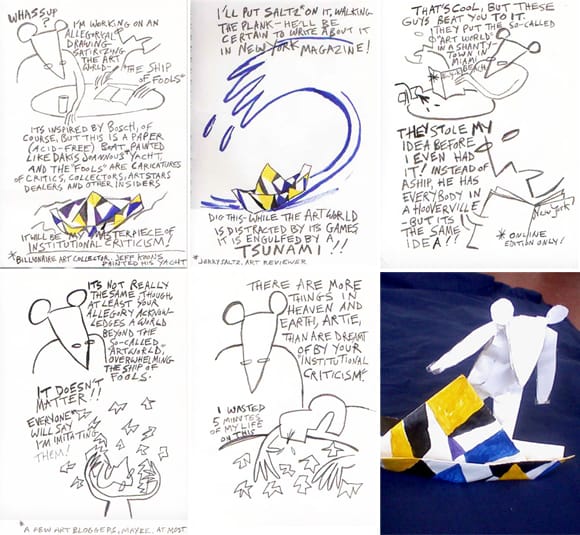 WHASSUP?
I'M WORKING ON AN
ALLEGORICAL
DRAWING
SATIRIZING
THE ART
WORLD- "THE SHIP
OF FOOLS"
ITS INSPIRED BY BOSCH, OF
COURSE, BUT THIS IS A PAPER
(ACID-FREE) BOAT, PAINTED
LIKE DAKIS JOANNOUS* YACHT,
AND THE "FOOLS" ARE CARICATURES
OF CRITICS, COLLECTORS, ARTSTARS
DEALERS AND OTHER INSIDERS
IT WILL BE MY MASTERPIECE OF
INSTITUTIONAL CRITICISM!
*BILLIONAIRE ART COLLECTOR. JEFF KOONS
PAINTED HIS YACHT
I'LL PUT SALTZ* ON IT, WALKING
THE PLANK-HE'LL BE
CERTAIN TO WRITE ABOUT IT
IN NEW YORK MAGAZINE!
DIG THIS-WHILE THE ART WORLD
IS DISTRACTED BY ITS GAMES
IT IS ENGULFED BY A
TSUNAMI!!
*JERRY SALTZ, ART REVIEWER
THAT'S COOL, BUT THESE
GUYS BEAT YOU TO IT.
THEY PUT THE SO-CALLED
"ART WORLD"
IN A SHANTY
TOWN IN
MIAMI
BEACH
THEY STOLE MY
IDEA BEFORE
I EVEN HAD
IT! INSTEAD OF
A SHIP, HE HAS
EVERYBODY IN
A HOOVERVILLE
-BUT ITS
THE SAME
IDEA!!
New York*
* ONLINE
EDITION ONLY!
ITS NOT REALLY
THE SAME, THOUGH,
AT LEAST YOUR
ALLEGORY ACKNOW-
LEDGES A WORLD
BEYOND THE
SO-CALLED
"ARTWORLD",
OVERWHELMING
THE SHIP OF
FOOLS.
IT DOESN'T
MATTER!!
EVERYONE*
WILL SAY
I'M IMITATING
THEM!
*A FEW ART BLOGGERS, MAYBE. AT MOST
THERE ARE MORE
THINGS IN
HEAVEN AND
EARTH, ARTIE,
THAN ARE DREAMT
OF BY YOUR
"INSTITUTIONAL
CRITICISM."
I WASTED
5 MINUTES
OF MY LIFE
ON THIS